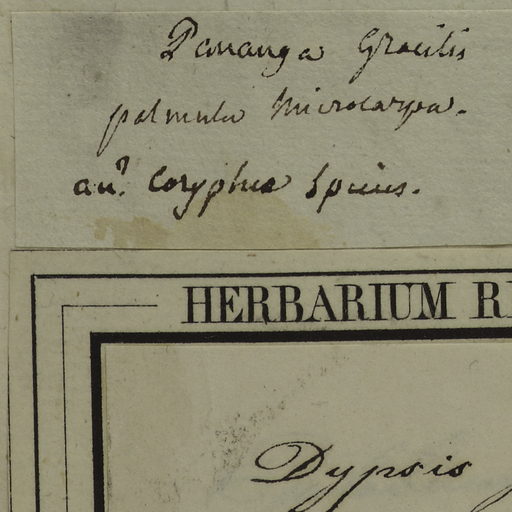 Pananga Gracilis
palmula Microcarpa.
an? Coryphae Species.
HERBARIUM
Dypsis